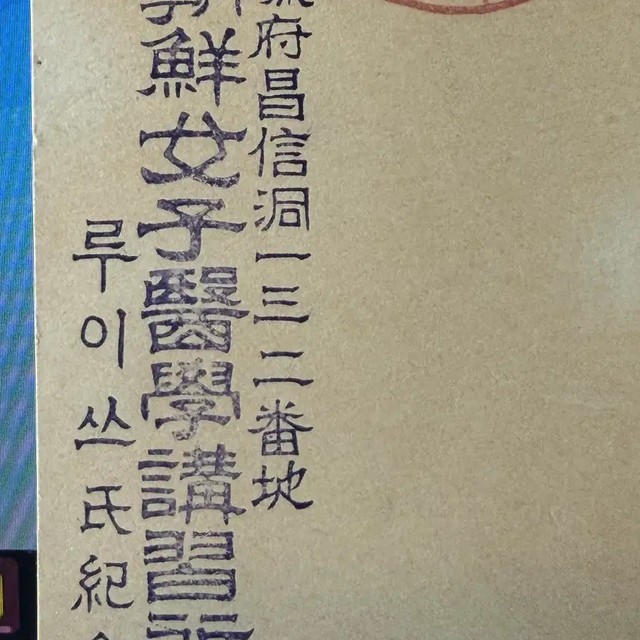 府昌信洞一三二番地
鮮女子醫學講習所
루이쓰氏紀